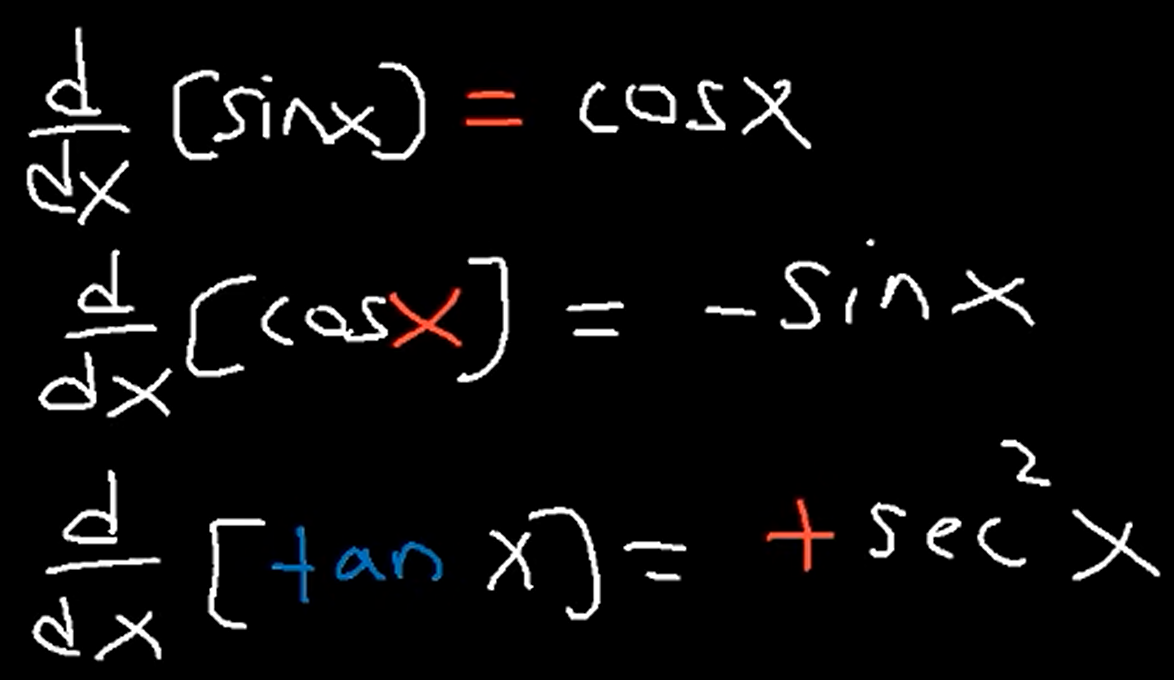 d/dx [sinx] = cosx
d/dx [cosx] = -sinx
d/dx [tan x] = +sec²x